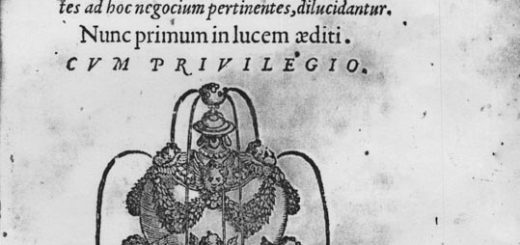 tes ad hoc negocium pertinentes, dilucidantur.
Nunc primum in lucem æditi.
CVM PRIVILEGIO.